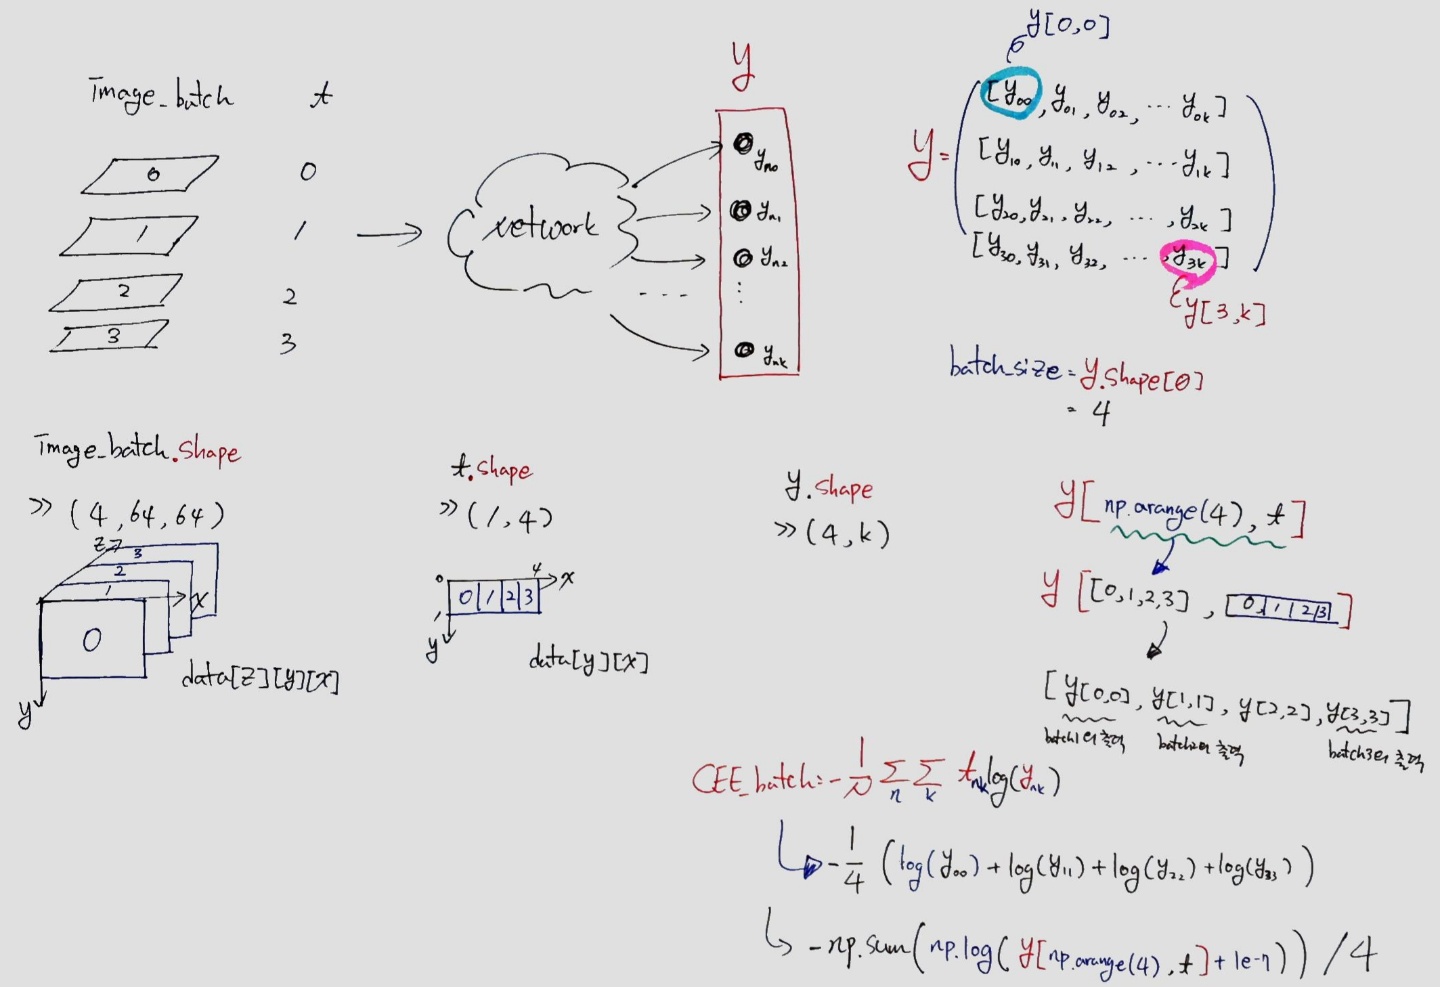 Image_batch t
0 0
1 1
2 2
3 3
network
y
yn0
yn1
yn2
ynk
y[0,0]
y =
[y00, y01, y02, ... y0k]
[y10, y11, y12, ... y1k]
[y20, y21, y22, ..., y2k]
[y30, y31, y32, ... , y3k]
y[3,k]
batch_size = y.shape[0]
= 4
Image_batch.shape
>> (4,64,64)
z
3
2
1
x
0
y
data[z][y][x]
t.shape
>> (1,4)
0 4 x
0 1 2 3
1
y
data[y][x]
y.shape
>> (4,k)
y[np.arange(4), t]
y [[0,1,2,3], 0 1 2 3]
[y[0,0], y[1,1], y[2,2], y[3,3]]
batch1의 출력 batch2의 출력 batch3의 출력
CEE_batch = - 1/N Σn Σk tnk log(ynk)
- 1/4 (log(y00) + log(y11) + log(y22) + log(y33))
-np.sum(np.log(y[np.arange(4), t] + 1e-7)) / 4